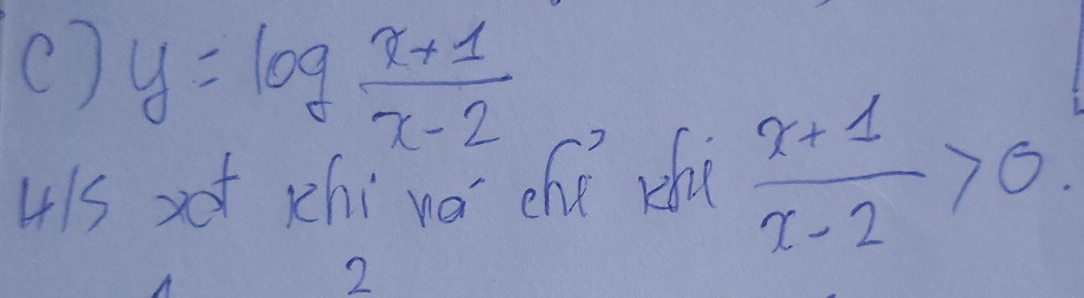 c) y = log (x+1)/(x-2)
H/S xđ khi và chỉ khi (x+1)/(x-2) > 0.
2